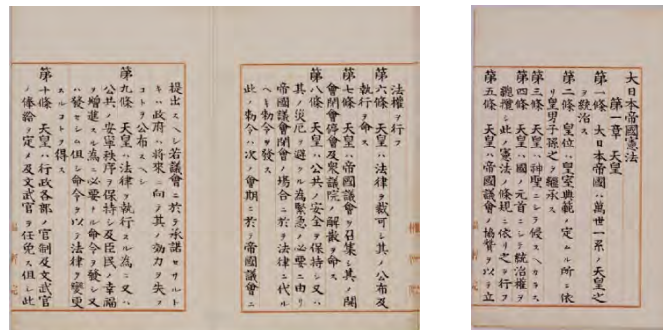 大日本帝國憲法
第一章 天皇
第一條 大日本帝國ハ萬世一系ノ天皇之
ヲ統治ス
第二條 皇位ハ皇室典範ノ定ムル所ニ依
リ皇男子孫之ヲ繼承ス
第三條 天皇ハ神聖ニシテ侵スヘカラス
第四條 天皇ハ國ノ元首ニシテ統治權ヲ
總攬シ此ノ憲法ノ條規ニ依リ之ヲ行フ
第五條 天皇ハ帝國議會ノ協賛ヲ以テ立
法權ヲ行フ
第六條 天皇ハ法律ヲ裁可シ其ノ公布及
執行ヲ命ス
第七條 天皇ハ帝國議會ヲ召集シ其ノ開
會閉會停會及衆議院ノ解散ヲ命ス
第八條 天皇ハ公共ノ安全ヲ保持シ又ハ
其ノ災厄ヲ避クル為緊急ノ必要ニ由リ
帝國議會閉會ノ場合ニ於テ法律ニ代ル
ヘキ勅令ヲ發ス
此ノ勅令ハ次ノ會期ニ於テ帝國議會ニ
提出スヘシ若議會ニ於テ承諾セサルト
キハ政府ハ將來ニ向テ其ノ効力ヲ失フ
コトヲ公布スヘシ
第九條 天皇ハ法律ヲ執行スル為ニ又ハ
公共ノ安寧秩序ヲ保持シ及臣民ノ幸福
ヲ增進スル為ニ必要ナル命令ヲ發シ又
ハ發セシム但シ命令ヲ以テ法律ヲ變更
スルコトヲ得ス
第十條 天皇ハ行政各部ノ官制及文武官
ノ俸給ヲ定メ及文武官ヲ任免ス但シ此